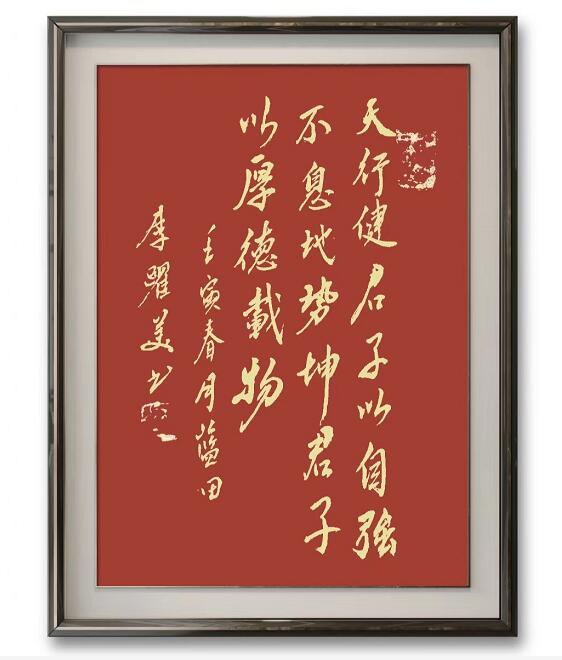 天行健君子以自强
不息地势坤君子
以厚德載物
壬寅春月蓝田
李瞿美书